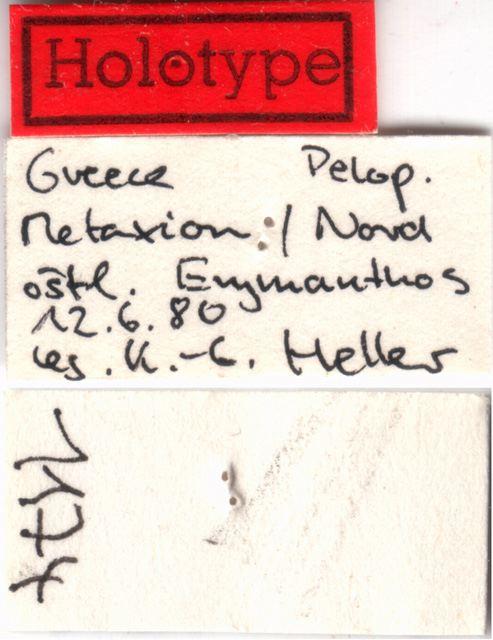 Holotype
Greece Pelop.
Metaxion / Nord
östl. Erymanthos
12.6.80
leg. K.-G. Heller